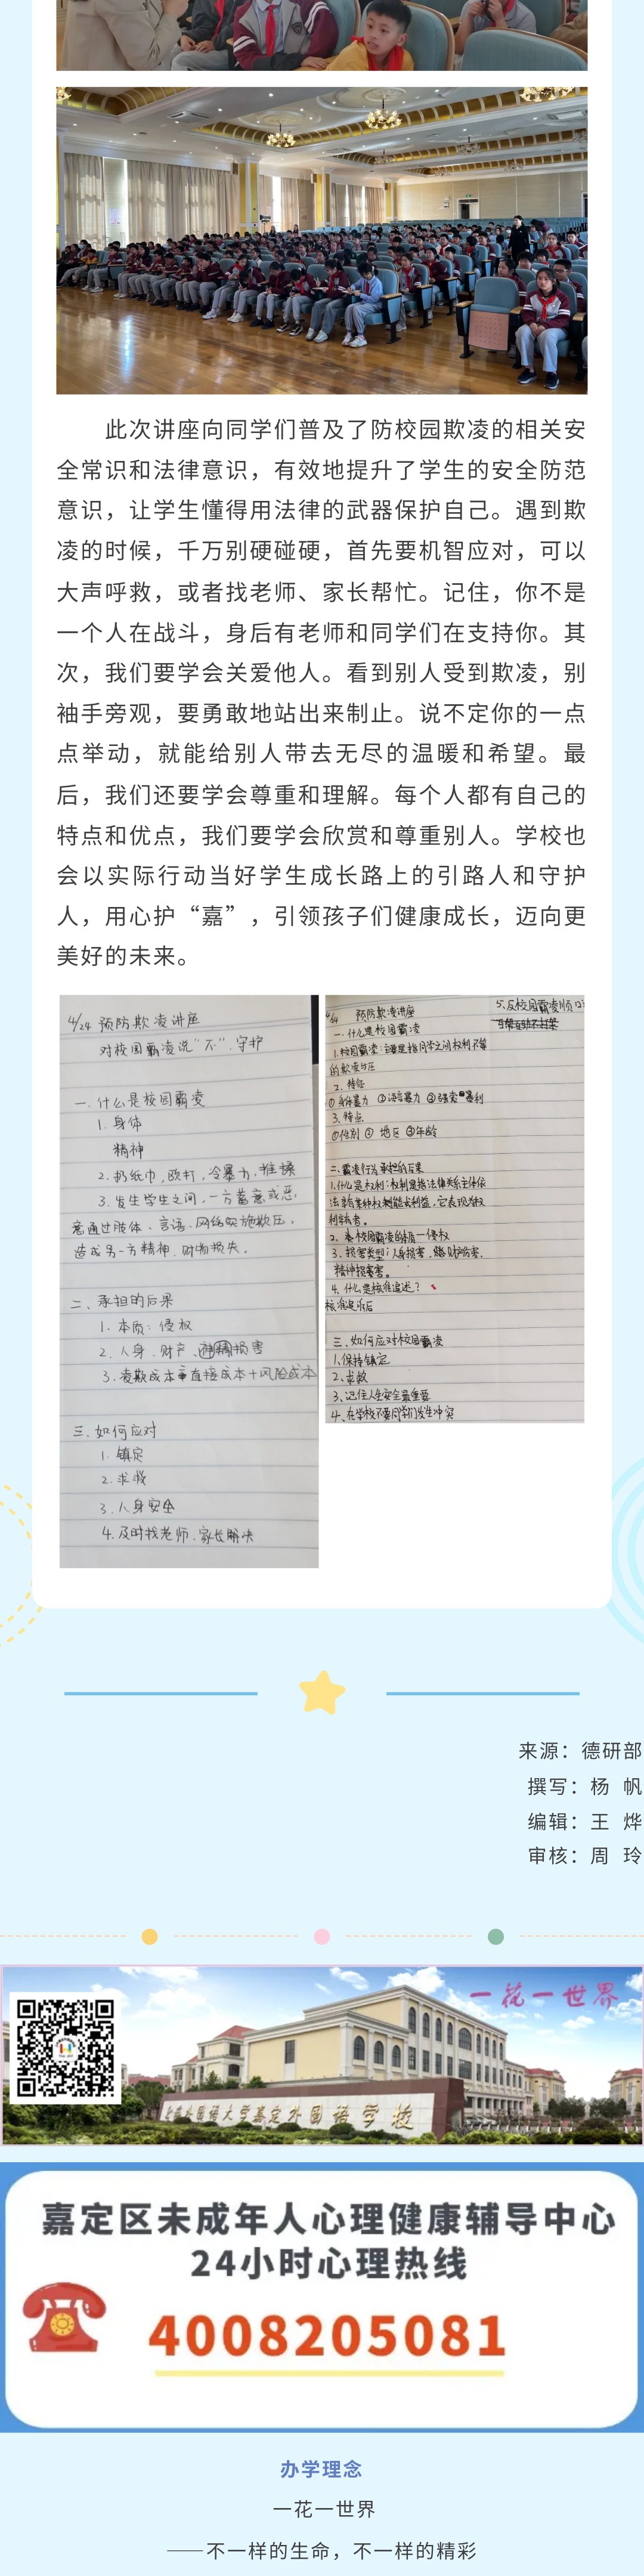 此次讲座向同学们普及了防校园欺凌的相关安
全常识和法律意识，有效地提升了学生的安全防范
意识，让学生懂得用法律的武器保护自己。遇到欺
凌的时候，千万别硬碰硬，首先要机智应对，可以
大声呼救，或者找老师、家长帮忙。记住，你不是
一个人在战斗，身后有老师和同学们在支持你。其
次，我们要学会关爱他人。看到别人受到欺凌，别
袖手旁观，要勇敢地站出来制止。说不定你的一点
点举动，就能给别人带去无尽的温暖和希望。最
后，我们还要学会尊重和理解。每个人都有自己的
特点和优点，我们要学会欣赏和尊重别人。学校也
会以实际行动当好学生成长路上的引路人和守护
人，用心护“嘉”，引领孩子们健康成长，迈向更
美好的未来。
4/24 预防欺凌讲座
对校园霸凌说“不”.守护
一.什么是校园霸凌
1.身体
精神
2.扔纸巾,欧打,冷暴力,推搡
3.发生学生之间,一方蓄意或恶
意通过肢体、言语、网络实施欺压,
造成另一方精神.财物损失.
二、承担的后果
1.本质:侵权
2.人身.财产.精神损害
3.凌欺成本=直接成本+风险成本
三.如何应对
1.镇定
2.求救
3.人身安全
4.及时找老师.家长解决
4/24 预防欺凌讲座
一.什么是校园霸凌
1.校园霸凌:主要是指同学之间权利不等
的欺凌与压
2.特征
①身体暴力 ②语言暴力 ③强索暴利
3.特点
①性别 ② 地区 ③年龄
二.霸凌行为承担的后果
1.什么是权利:权利是指法律关系主体依
法享有某种权利能或利益,它表现为权
利享有者。
2.校园霸凌的本质一侵权
3.损害类型:人身损害,财产损害.
精神损害.
4.什么是核准追述?
核准是诉后
三.如何应对校园霸凌
1.保持镇定
2.求救
3.记住人生安全最重要
4.在学校不要同学们发生冲突
5.反校园霸凌顺口
来源：德研部
撰写：杨 帆
编辑：王 烨
审核：周 玲
一花一世界
上海外国语大学嘉定外国语学校
嘉定区未成年人心理健康辅导中心
24小时心理热线
4008205081
办学理念
一花一世界
——不一样的生命，不一样的精彩